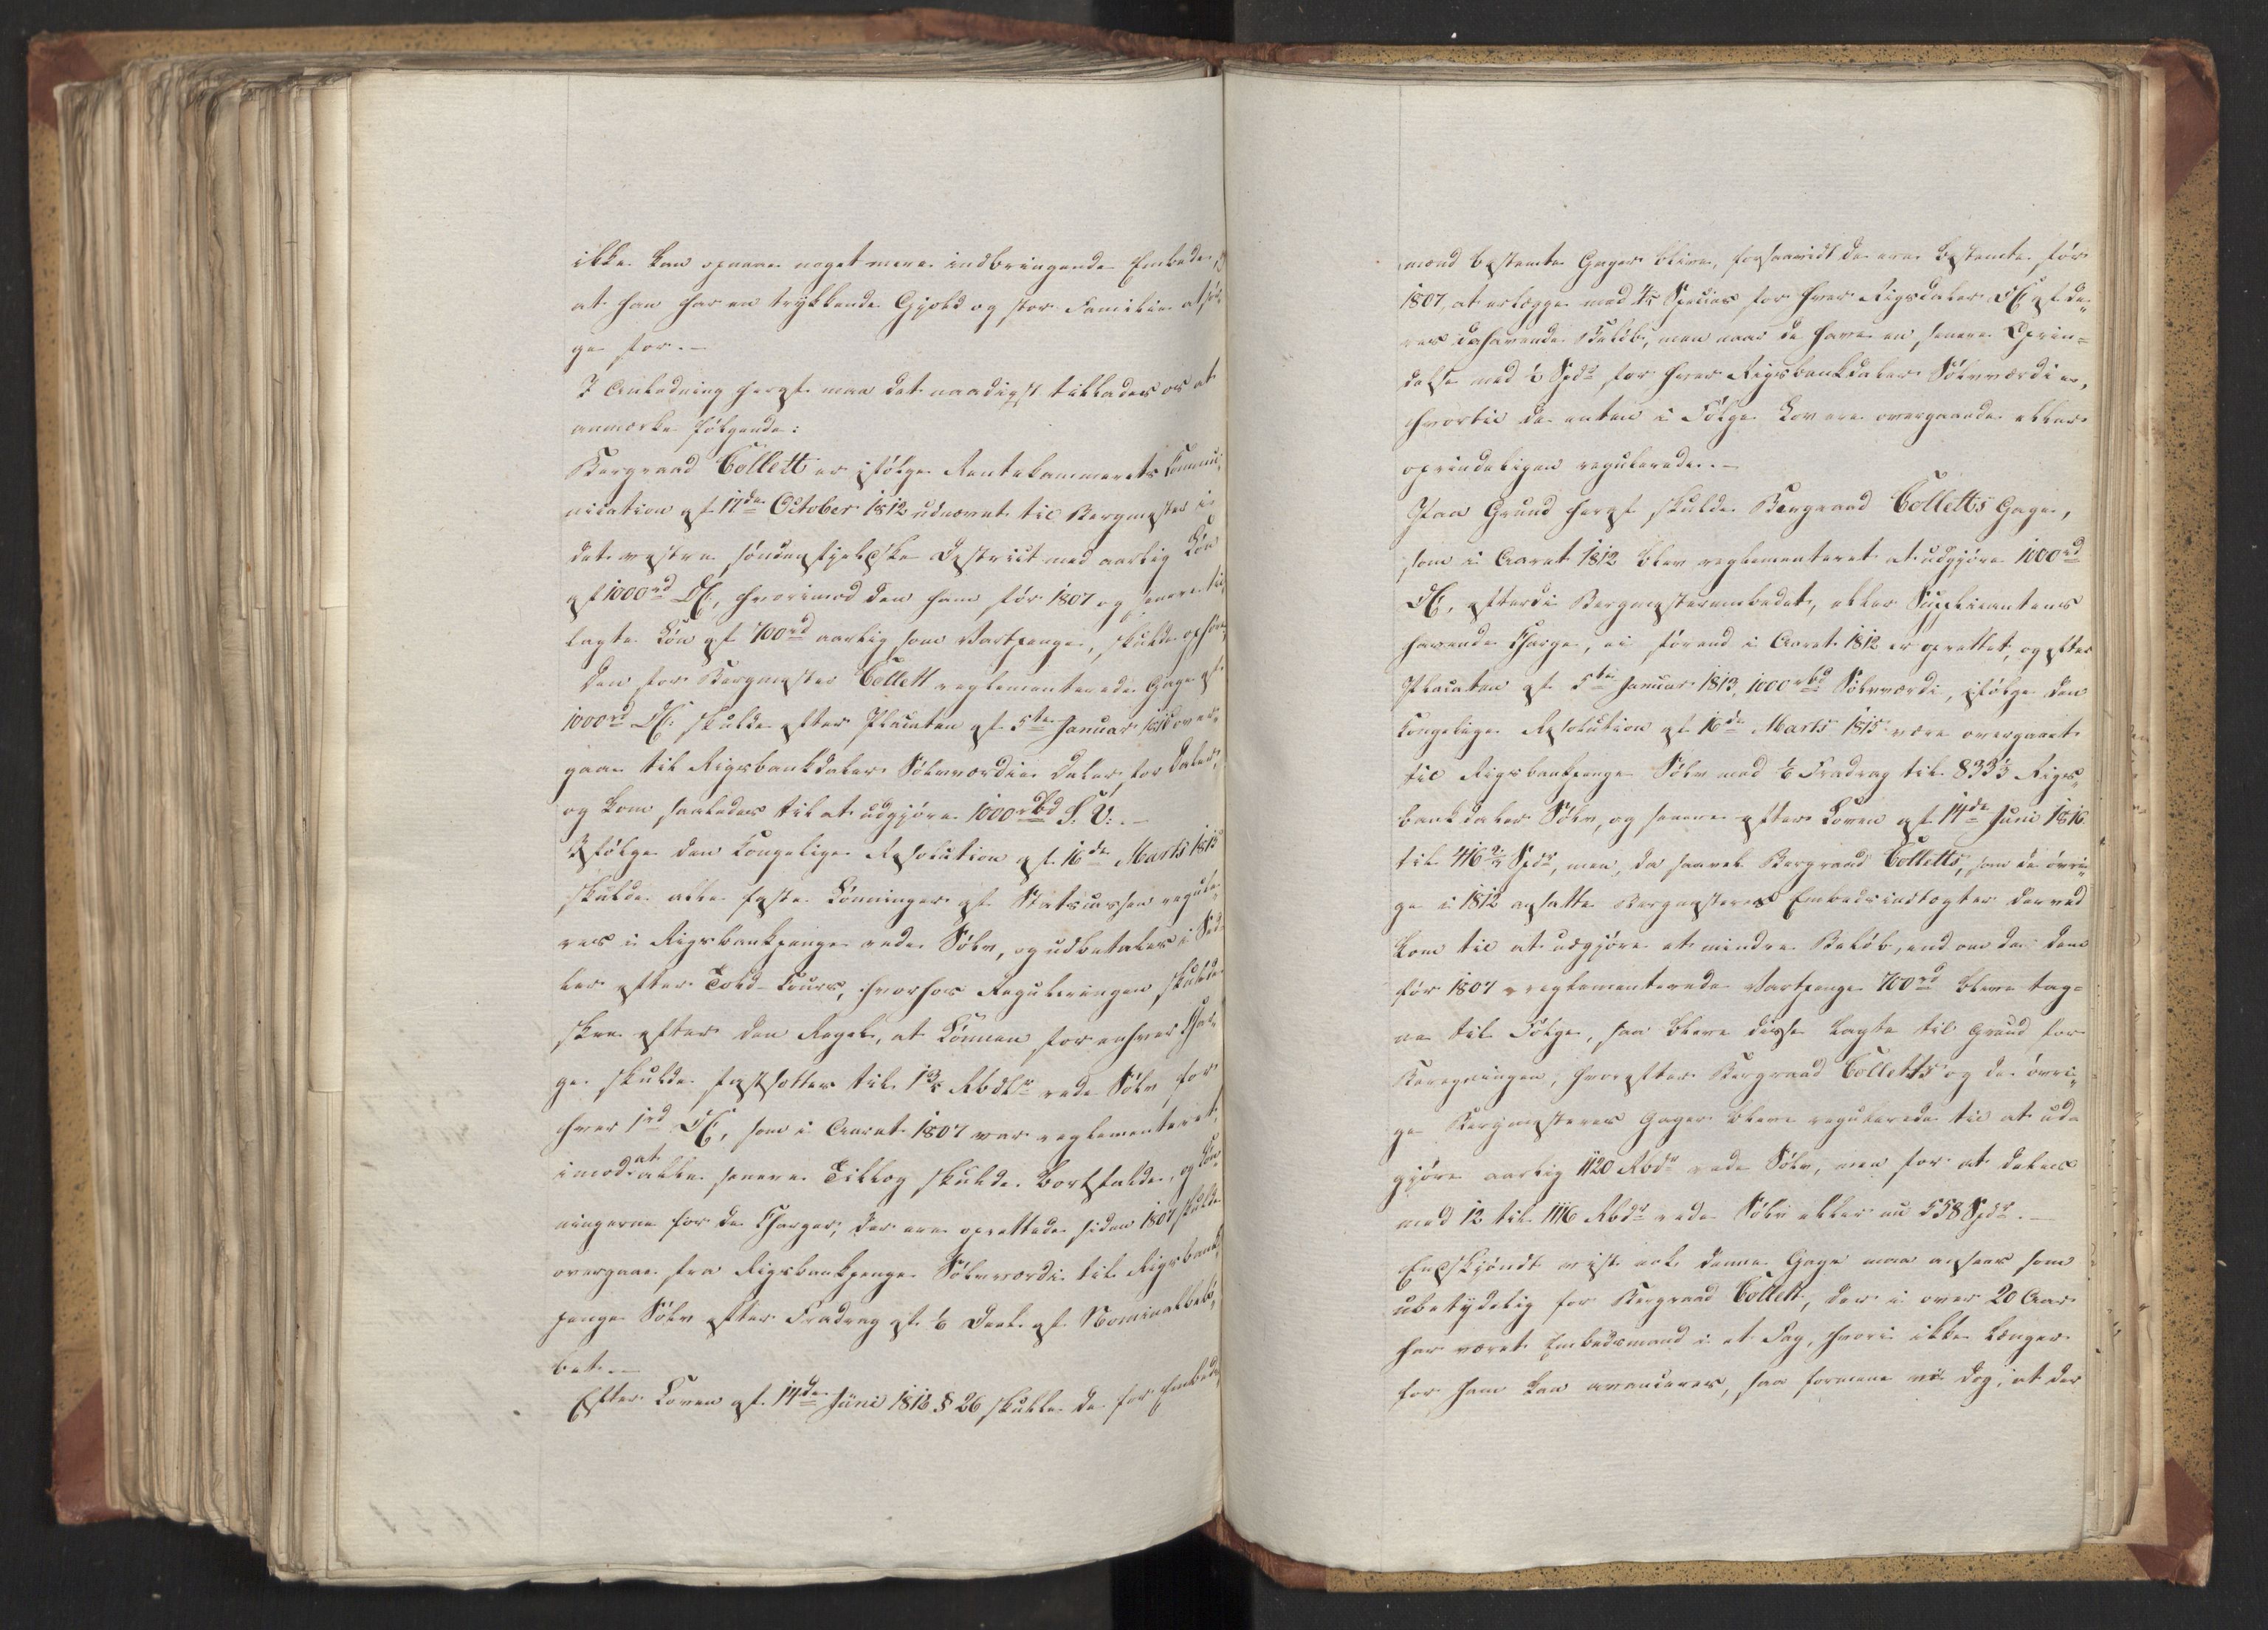 ikke kan opnaae noget mere indbringende Embede,
at han har en trykkende Gjæld og stor Familie at sør-
ge for.—
I Anledning heraf maa det naadigst tillades os at
anmærke følgende:
Bergraad Collett er ifølge Rentekammerets Commu-
nication af 17de October 1812 udnævnt til Bergmester i
det vestre søndenfjelske District med aarlig Løn
af 1000rd DC, hvorimod den ham før 1807 og senere til-
lagte Løn af 700rd aarlig som Vartpenge, skulde ophøre,
Den for Bergmester Collett reglementerede Gage af
1000rd DC: skulde efter Placaten af 5te Januar 1813 over-
gaae til Rigsbankdaler Sølvværdie Daler for Daler,
og kom saaledes til at udgjøre 1000rbd S: V:.—
Ifølge den Kongelige Resolution af 16de Marts 1815
skulde alle faste Lønninger af Statscassen regule-
res i Rigsbankpenge rede Sølv, og udbetales i Sed-
ler efter Told-Cours, hvorhos Reguleringen skulde
skee efter den Regel, at Lønnen for enhver Char-
ge skulde fastsættes til 1 3/5 Rbdlr rede Sølv for
hver 1rd DC, som i Aaret 1807 var reglementeret,
imod at alle senere Tillæg skulde bortfalde, og Løn-
ningerne for de Charger, der ere oprettede siden 1807 skulde
overgaae fra Rigsbankpenge Sølvværdi til Rigsbank-
penge Sølv efter Fradrag af 1/6 Deel af Nominalbelø-
bet.—
Efter Loven af 14de Juni 1816 § 26 skulle de for Embeds-
mænd bestemte Gager blive, forsaavidt de ere bestemte før
1807, at erlægge med 4/5 Species for hver Rigsdaler DC af de-
res dahavende Beløb, men naar de have en senere Oprin-
delse med ½ Spd for hver Rigsbankdaler Sølvværdi er,
hvortil de enten i Følge Lov ere overgaaede eller
oprindeligen regulerede.—
Paa Grund heraf skulde Bergraad Colletts Gage,
som i Aaret 1812 blev reglementeret at udgjøre 1000rd
DC, efterdi Bergmesterembedet, eller Supplicantens
havende Charge, ei førend i Aaret 1812 er oprettet, og efter
Placaten af 5te Januar 1813, 1000rbd Sølvværdi, ifølge den
Kongelige Resolution af 16de Marts 1815 være overgaaet
til Rigsbankpenge Sølv med 1/6 Fradrag til 833⅓ Rigs-
bankdaler Sølv, og senere efter Loven af 14de Juni 1816
til 416⅔ Spdr, men, da saavel Bergraad Colletts, som de øvri-
ge i 1812 ansatte Bergmesteres Embedsindtægter derved
kom til at udgjøre et mindre Beløb, end om de dem
før 1807 reglementerede Vartpenge 700rd bleve tag-
ne til Følge, saa bleve disse lagte til Grund for
Beregningen, hvorefter Bergraad Colletts og de øvri-
ge Bergmesteres Gager bleve regulerede til at ud-
gjøre aarlig 1120 Rbdr rede Sølv, men for at deles
med 12 til 1116 Rbdr rede Sølv eller nu 558 Spdr.—
Endskjøndt vist nok denne Gage maa ansees som
ubetydelig for Bergraad Collett, der i over 20 Aar
har været Embedsmand i et Fag, hvori ikke længer
for ham kan avanceres, saa formene vi dog, at der